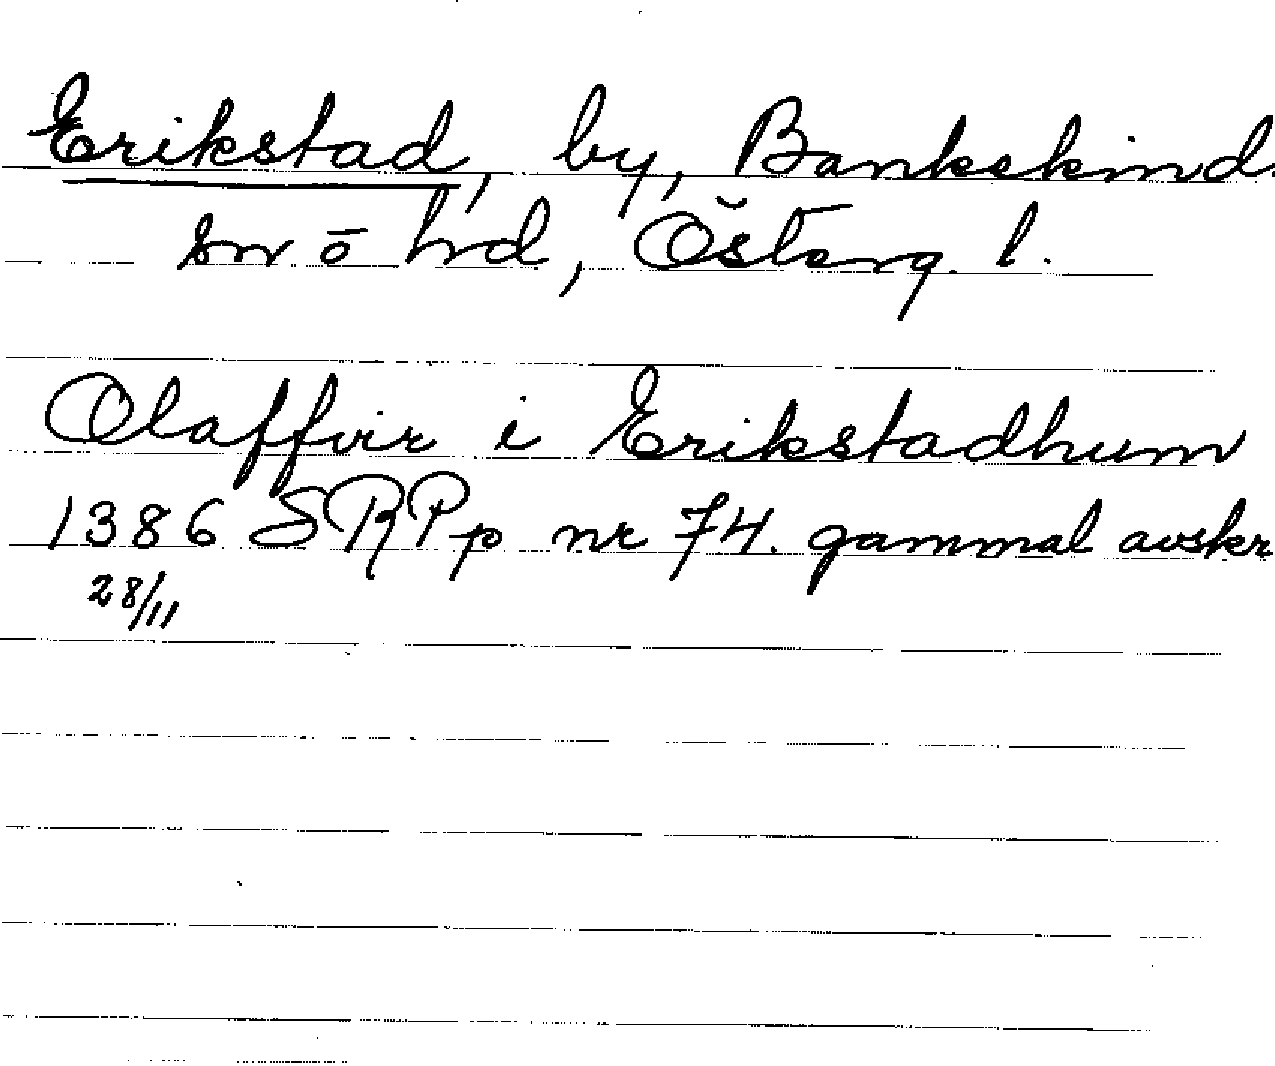 Erikstad, by, Bankekind.
sn o hd, Österg. l.
Olaffvir i Erikstadhum
1386 SRPp nr 74. gammal avskr
28/11